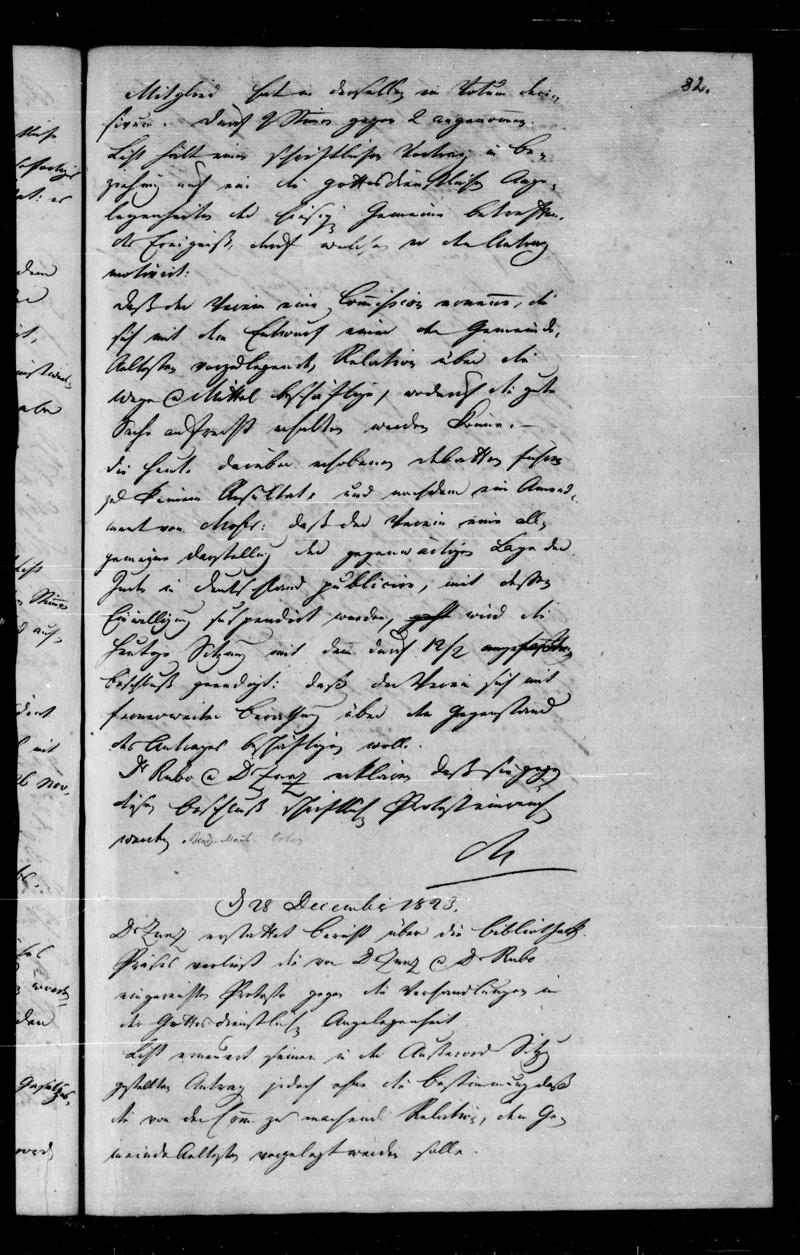 82.
Mitglied hat in derselben ein Votum deci-
sivum. Durch 9 Stimmen gegen 2 angenommen.
List hält einen schriftlichen Vortrag in Be-
ziehung auf ein die gottesdienstlichen Ange-
legenheiten der hiesigen Gemeine betreffen-
des Ereigniß, durch welchen er den Antrag
motivirt:
daß der Verein eine Commission ernenne, die
sich mit dem Entwurf einer den Gemeinde-
Aeltesten vorzulegenden Relation über die
Wege & Mittel beschäftige, wodurch die gute
Sache aufrecht erhalten werden könne. –
die heute darüber erhobenen Debatten führen
zu keinem Resultate, und nachdem ein Amend-
ment von Moser: daß der Verein eine all-
gemeine Darstellung der gegenwärtigen Lage der
Juden in Deutschland publicire, mit dessen
Einwilligung suspendirt worden, wird die
heutige Sitzung mit dem durch 12/2
Beschluß geendigt: daß der Verein sich mit
fernerweiter Berathung über den Gegenstand
des Antrages beschäftigen wolle.
Dr Rubo & Dr Zunz erklären daß sie gegen
diesen Beschluß schriftlich Protest einreichen
werden.
D 28 December 1823.
Dr Zunz erstattet Bericht über die Bibliothek.
Präses verliest die von Dr Zunz & Dr Rubo
eingereichten Proteste gegen die Verhandlungen in
der Gottesdienstlichen Angelegenheit.
List erneuert seinen in der Ausserord Sitzg
gestellten Antrag jedoch ohne die Bestimmung daß
die von der Comm zu machende Relation, den Ge-
meinde Aeltesten vorgelegt werden solle.